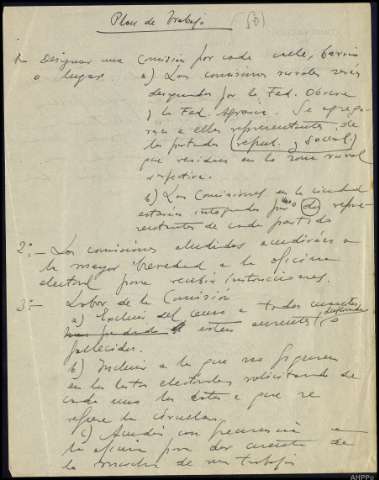 Plan de Trabajo (50)
1º Designar una Comisión por cada calle, barrio
o lugar.
a) Las comisiones rurales serán
designadas por la Fed. Obrera
y la Fed. Agraria. Se agrega-
rán a ellas representantes de
los partidos (repub. y social)
que residan en la zona rural
respectiva.
b) Las Comisiones en la ciudad
estarán integradas por de repre-
sentantes de cada partido
2º.- Las comisiones aludidas acudirán a
la mayor brevedad a la oficina
electoral para recibir instrucciones.
3º.- Labor de la Comisión
a) Excluir del censo a todos cuantos
estén ausentes o
fallecidos.
b) Incluir a los que no figuren
en las listas electorales solicitando de
cada uno los datos a que se
refiere la circular.
c) Acudir con frecuencia a
la oficina para dar cuenta de
la marcha de sus trabajos
AHPPo